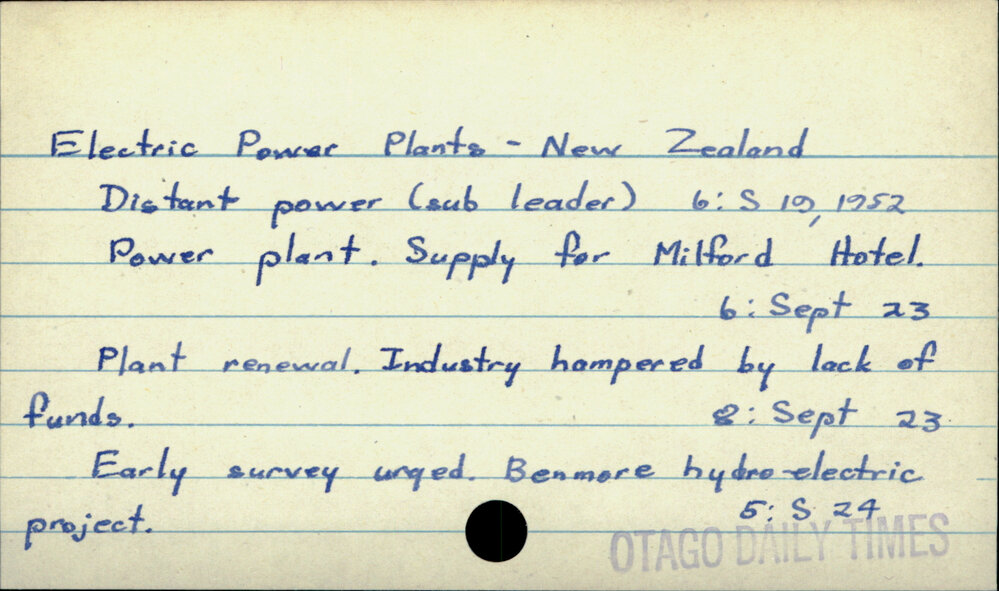 Electric Power Plants - New Zealand
Distant power (sub leader) 6: S 19, 1952
Power plant. Supply for Milford Hotel.
6: Sept 23
Plant renewal. Industry hampered by lack of
funds. 8: Sept 23
Early survey urged. Benmore hydro-electric
project. 5: S 24
OTAGO DAILY TIMES